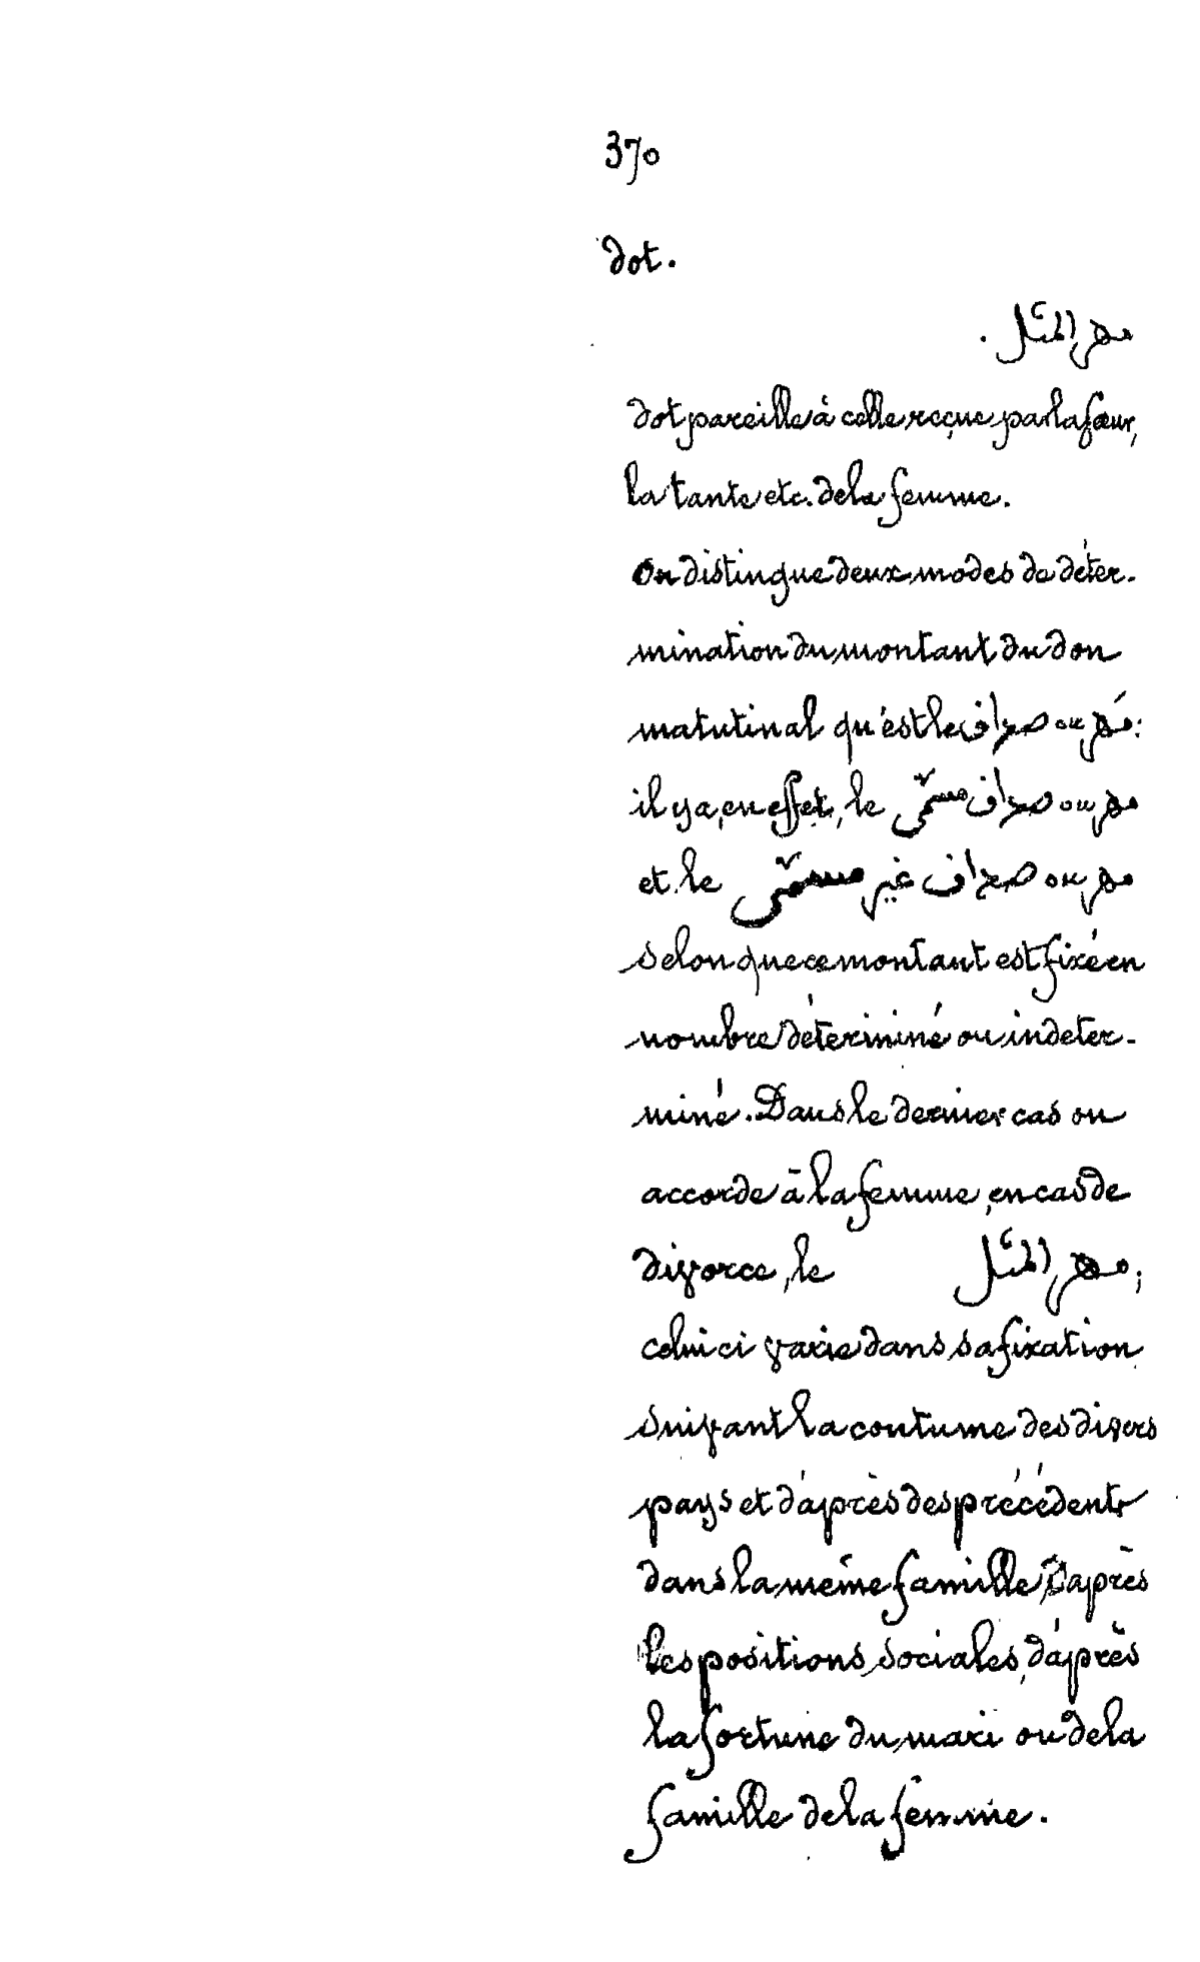 370
dot.
مهر المثل.
dot pareille à celle reçue par la sœur,
la tante etc. de la femme.
On distingue deux modes de déter-
mination du montant du don
matutinal qu'est le صداق ou مَهر:
il y a, en effet, le مهر ou صداق مسمّى
et le مهر ou صداق غير مسمّى
selon que ce montant est fixé en
nombre déterminé ou indeter-
miné. Dans le dernier cas on
accorde à la femme, en cas de
divorce, le مهر المثل;
celui ci varie dans sa fixation
suivant la coutume des divers
pays et d'après des précédents
dans la même famille, d'après
les positions sociales, d'après
la fortune du mari ou de la
famille de la femme.